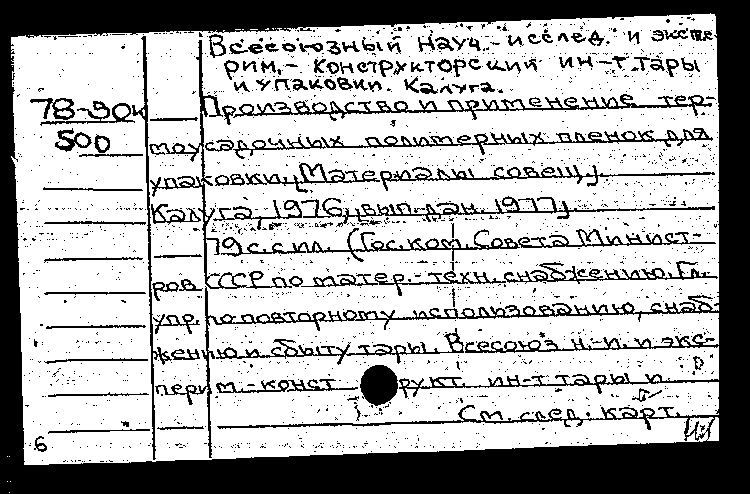 Всесоюзный науч.-исслед. и экспе-
рим.-конструкторский ин-т тары
и упаковки. Калуга.
78-30к Производство и применение тер-
500 моусадочных полимерных пленок для
упаковки. [Материалы совещ.].
Калуга, 1976, [вып. дан. 1977].
79 с. с ил. (Гос. ком. Совета Минист-
ров СССР по матер.-техн. снабжению. Гл.
упр. по повторному использованию, снаб-
жению и сбыту тары. Всесоюз н.-и. и экс-
перим.-конструкт. ин-т тары и
См. след. карт.
6